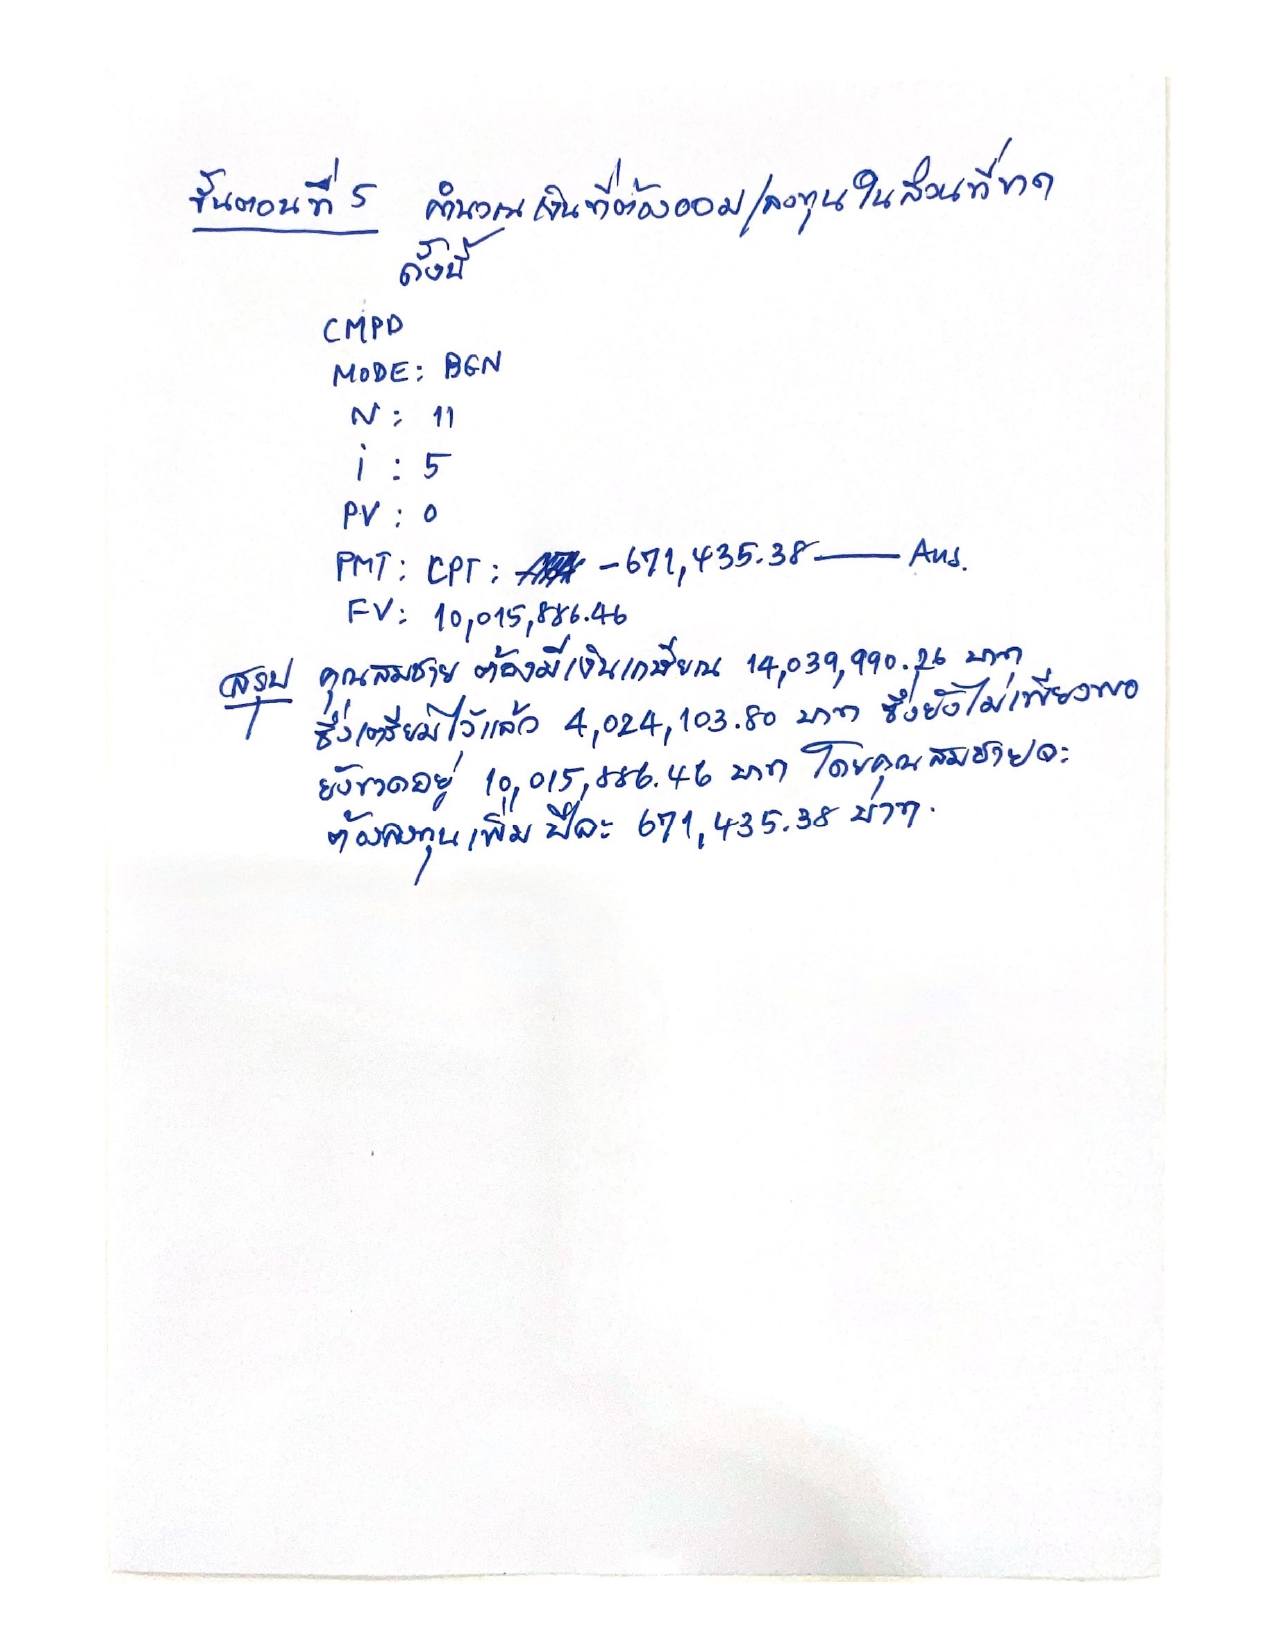 ขั้นตอนที่ 5 คำนวณเงินที่ต้องออม/ลงทุนในส่วนที่ขาด
ดังนี้
CMPD
MODE: BGN
N : 11
i : 5
PV : 0
PMT : CPT : -671,435.38 —— Ans.
FV : 10,015,886.46
สรุป คุณสมชาย ต้องมีเงินเกษียณ 14,039,990.26 บาท
ซึ่งเตรียมไว้แล้ว 4,024,103.80 บาท ซึ่งยังไม่เพียงพอ
ยังขาดอยู่ 10,015,886.46 บาท โดยคุณสมชายจะ
ต้องลงทุนเพิ่ม ปีละ 671,435.38 บาท.